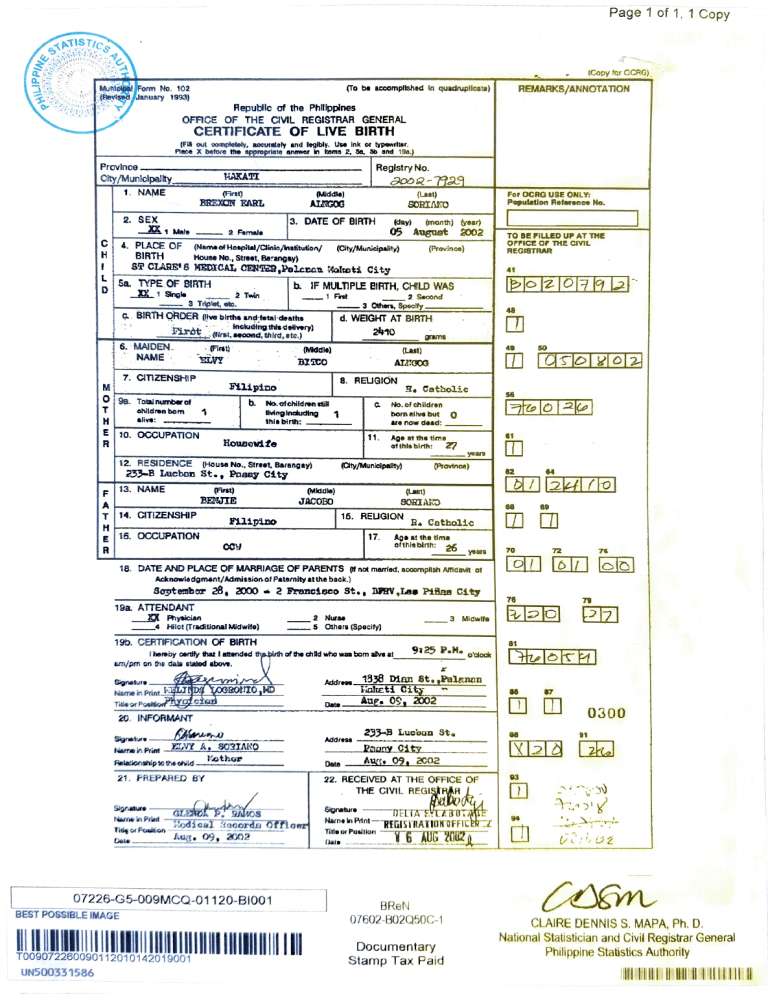 Page 1 of 1, 1 Copy
PHILIPPINE STATISTICS AUTHORITY
(Copy for OCRG)
Municipal Form No. 102
(Revised January 1993)
(To be accomplished in quadruplicate)
REMARKS/ANNOTATION
Republic of the Philippines
OFFICE OF THE CIVIL REGISTRAR GENERAL
CERTIFICATE OF LIVE BIRTH
(Fill out completely, accurately and legibly. Use ink or typewriter.
Place X before the appropriate answer in items 2, 5a, 5b and 19a.)
Province
City/Municipality MAKATI
Registry No.
2002-7929
CHILD
1. NAME (First) (Middle) (Last)
BREXON EARL ALINGOG SORIANO
For OCRG USE ONLY:
Population Reference No.
2. SEX
XX 1 Male 2 Female
3. DATE OF BIRTH (day) (month) (year)
05 August 2002
TO BE FILLED UP AT THE
OFFICE OF THE CIVIL
REGISTRAR
4. PLACE OF BIRTH (Name of Hospital/Clinic/Institution/ (City/Municipality) (Province)
House No., Street, Barangay)
ST CLARE'S MEDICAL CENTER, Palanan Makati City
41
5a. TYPE OF BIRTH
XX 1 Single 2 Twin
3 Triplet, etc.
b. IF MULTIPLE BIRTH, CHILD WAS
1 First 2 Second
3 Others, Specify
c. BIRTH ORDER (live births and fetal deaths
including this delivery)
First (first, second, third, etc.)
d. WEIGHT AT BIRTH
2410 grams
48
1
49 50
1 050802
MOTHER
6. MAIDEN NAME (First) (Middle) (Last)
ELVY
7. CITIZENSHIP
Filipino
8. RELIGION
R. Catholic
56
76026
9a. Total number of
children born
alive: 1
b. No. of children still
living including
this birth: 1
c. No. of children
born alive but
are now dead: 0
10. OCCUPATION
Housewife
11. Age at the time
of this birth: 27 years
61
1
12. RESIDENCE (House No., Street, Barangay) (City/Municipality) (Province)
233-B Lucban St., Pasay City
62 64
01 2410
FATHER
13. NAME (First) (Middle) (Last)
BENJIE JACOBO SORIANO
14. CITIZENSHIP
Filipino
15. RELIGION
R. Catholic
68 69
1 1
16. OCCUPATION
OCW
17. Age at the time
of this birth: 26 years
70 72 74
01 01 00
18. DATE AND PLACE OF MARRIAGE OF PARENTS (If not married, accomplish Affidavit of
Acknowledgment/Admission of Paternity at the back.)
September 28, 2000 - 2 Francisco St., Las Piñas City
19a. ATTENDANT
XX 1 Physician 2 Nurse 3 Midwife
4 Hilot (Traditional Midwife) 5 Others (Specify)
76 79
220 27
19b. CERTIFICATION OF BIRTH
I hereby certify that I attended the birth of the child who was born alive at 9:25 P.M. o'clock
am/pm on the date stated above.
81
Signature
Name in Print
Title or Position Physician
Address 1838 Dian St., Palanan
Makati City
Date Aug. 09, 2002
86 87
1 1
0300
20. INFORMANT
Signature
Name in Print ELVY A. SORIANO
Relationship to the child Mother
Address 233-B Lucban St.
Pasay City
Date Aug. 09, 2002
88 91
21. PREPARED BY
Signature
Name in Print
Title or Position Medical Records Officer
Date Aug. 09, 2002
22. RECEIVED AT THE OFFICE OF
THE CIVIL REGISTRAR
Signature
Name in Print
Title or Position REGISTRATION OFFICER
Date 16 AUG 2002
93
1
94
07226-G5-009MCQ-01120-BI001
BEST POSSIBLE IMAGE
T009072260090112010142019001
UN500331586
BReN
07602-B02Q50C-1
Documentary
Stamp Tax Paid
CLAIRE DENNIS S. MAPA, Ph. D.
National Statistician and Civil Registrar General
Philippine Statistics Authority